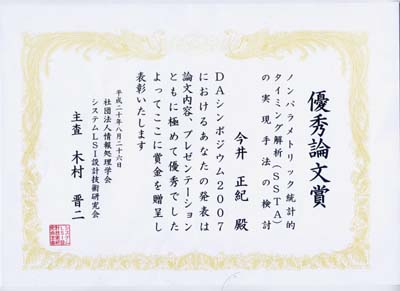 優秀論文賞
ノンパラメトリック統計的
タイミング解析(SSTA)
の実現手法の検討
今井 正紀 殿
DAシンポジウム2007
におけるあなたの発表は
論文内容、プレゼンテーション
ともに極めて優秀でした
よってここに賞金を贈呈し
表彰いたします
平成二十年八月二十六日
社団法人情報処理学会
システムLSI設計技術研究会
主査 木村 晋二